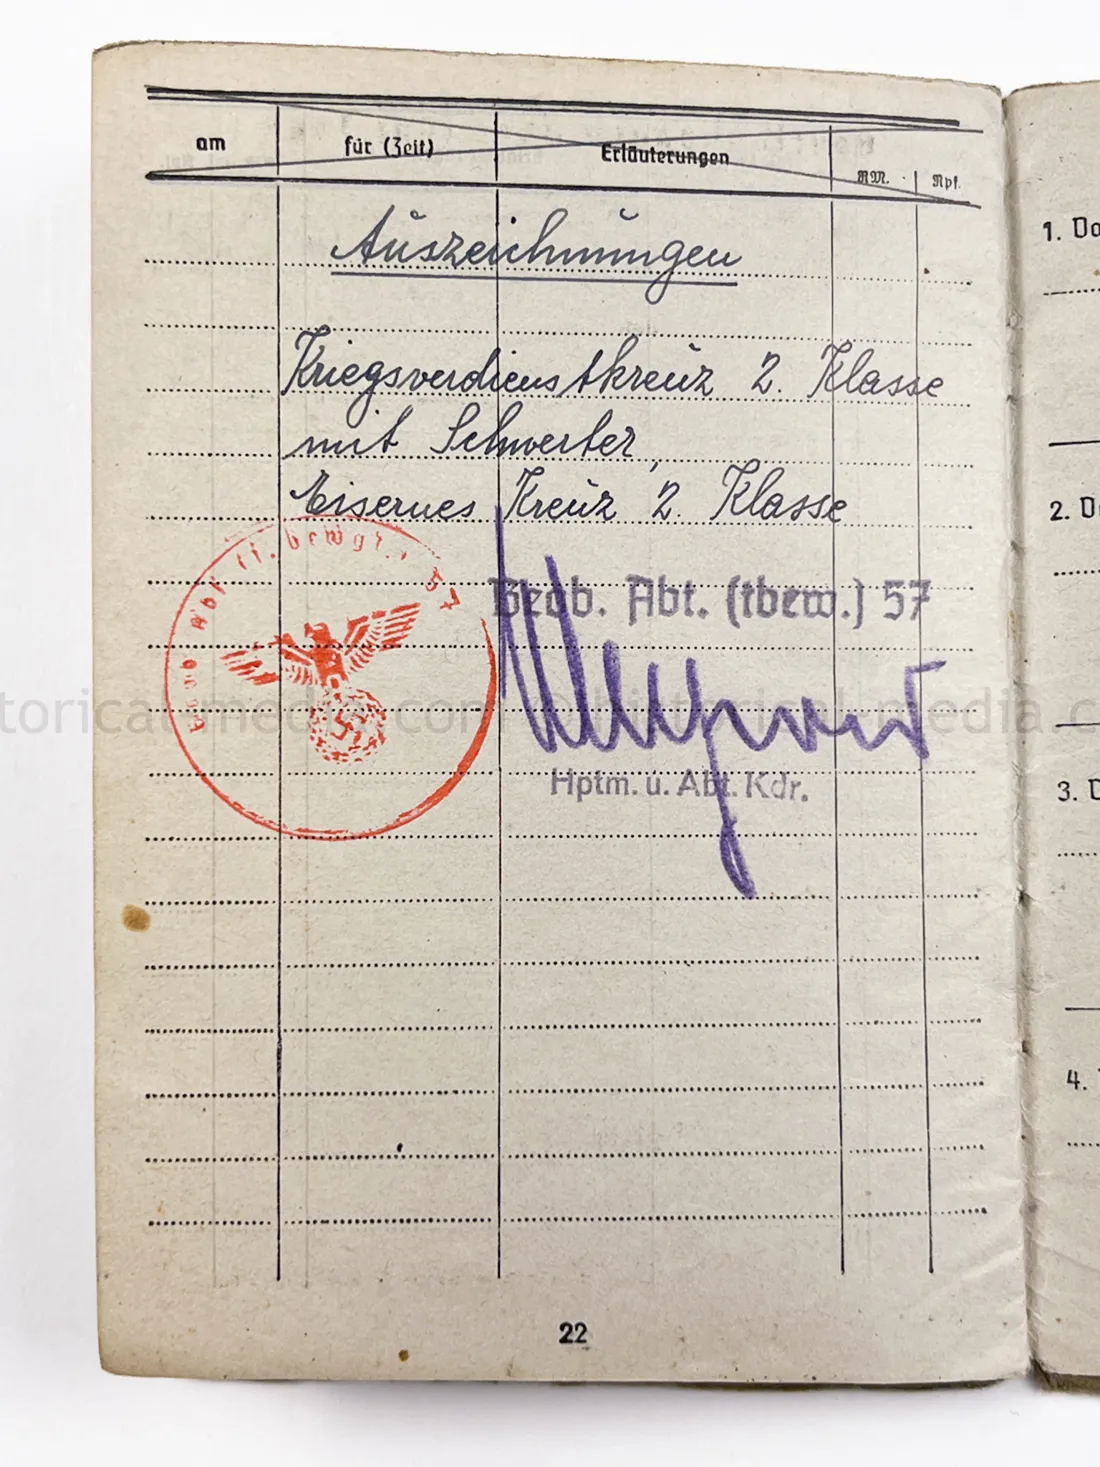 am für (Zeit) Erläuterungen RM. Rpf.
Auszeichnungen
Kriegsverdienstkreuz 2. Klasse
mit Schwerter,
Eisernes Kreuz 2. Klasse
Beob. Abt. (tbew.) 57
Beob Abt (t. bewgl.) 57
Hptm. u. Abt. Kdr.
22
1. Da
2. D
3. D
4.
torical-media.com © historical-media.c